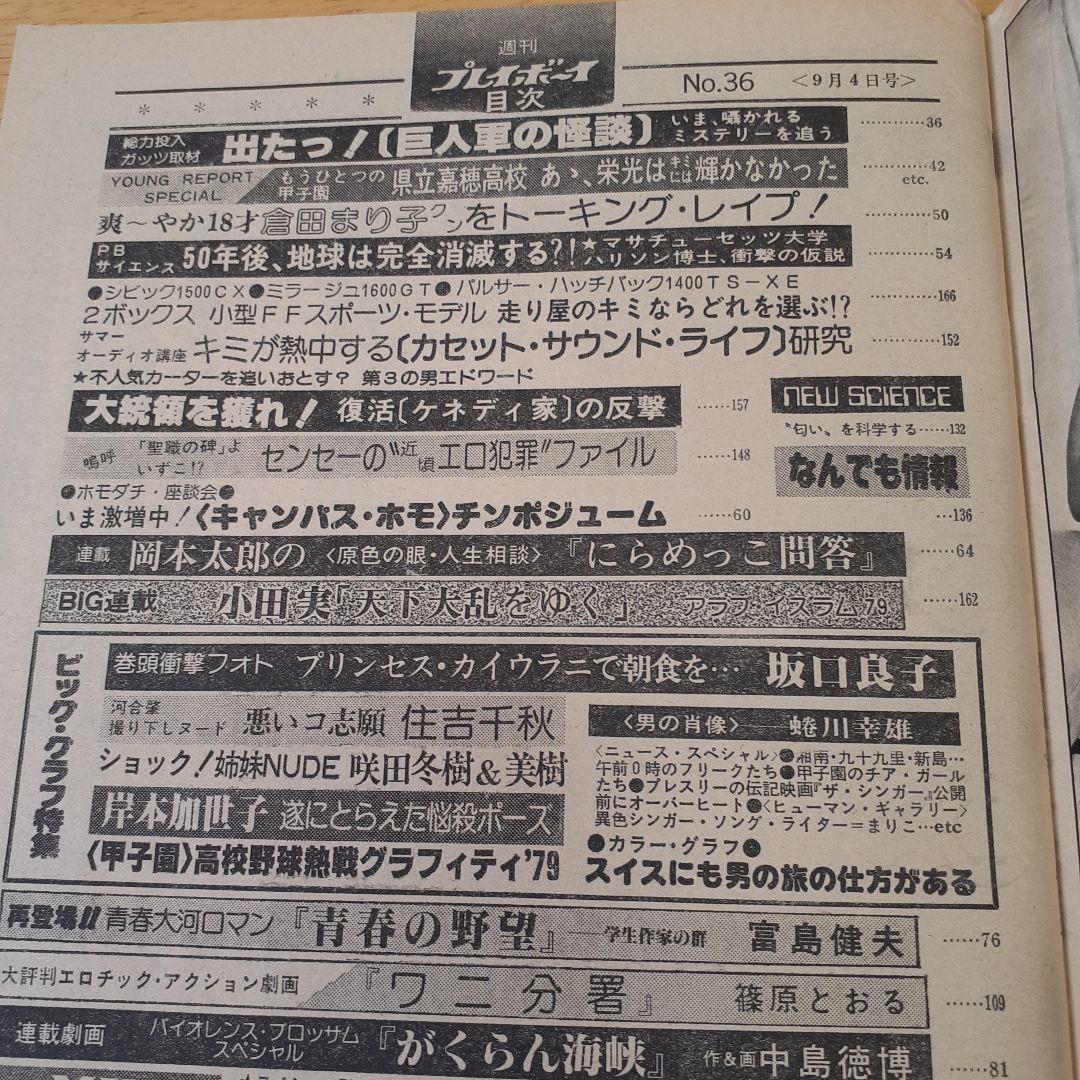 週刊
プレイボーイ
目次
No.36 <9月4日号>
* * * * *
総力投入
ガッツ取材
出たっ!〔巨人軍の怪談〕
いま、囁かれる
ミステリーを追う
…………36
YOUNG REPORT
SPECIAL
もうひとつの
甲子園
県立嘉穂高校 あゝ、栄光はキミには輝かなかった
…………42
etc.
爽〜やか18才倉田まり子クンをトーキング・レイプ!
…………50
PB
サイエンス
50年後、地球は完全消滅する?!
★マサチューセッツ大学
ハリソン博士、衝撃の仮説
…………54
●シビック1500CX●ミラージュ1600GT●パルサー・ハッチバック1400TS-XE
2ボックス 小型FFスポーツ・モデル 走り屋のキミならどれを選ぶ!?
…………166
サマー
オーディオ講座
キミが熱中する〔カセット・サウンド・ライフ〕研究
…………152
★不人気カーターを追いおとす? 第3の男エドワード
大統領を獲れ! 復活〔ケネディ家〕の反撃
……157
NEW SCIENCE
〝匂い〟を科学する……132
嗚呼
「聖職の碑」よ
いずこ!?
センセーの〝近頃エロ犯罪〟ファイル
……148
なんでも情報
…136
●ホモダチ・座談会●
いま激増中!〈キャンパス・ホモ〉チンポジューム
……60
連載 岡本太郎の〈原色の眼・人生相談〉『にらめっこ問答』
……64
BIG連載 小田実「天下大乱をゆく」 アラブ・イスラム'79
……162
ビッグ・グラフ特集
巻頭衝撃フォト プリンセス・カイウラニで朝食を… 坂口良子
河合肇
撮り下しヌード
悪いコ志願 住吉千秋
ショック!姉妹NUDE 咲田冬樹&美樹
岸本加世子 遂にとらえた悩殺ポーズ
〈甲子園〉高校野球熱戦グラフィティ'79
〈男の肖像〉——蜷川幸雄
〈ニュース・スペシャル〉●湘南・九十九里・新島…
午前0時のフリークたち●甲子園のチア・ガール
たち●プレスリーの伝記映画『ザ・シンガー』公開
前にオーバーヒート●〈ヒューマン・ギャラリー〉
異色シンガー・ソング・ライター=まりこ…etc
●カラー・グラフ●
スイスにも男の旅の仕方がある
再登場!! 青春大河ロマン『青春の野望』——学生作家の群 富島健夫
……76
大評判エロチック・アクション劇画 『ワニ分署』 篠原とおる
……109
連載劇画
バイオレンス・ブロッサム
スペシャル
『がくらん海峡』 作&画 中島徳博
……81